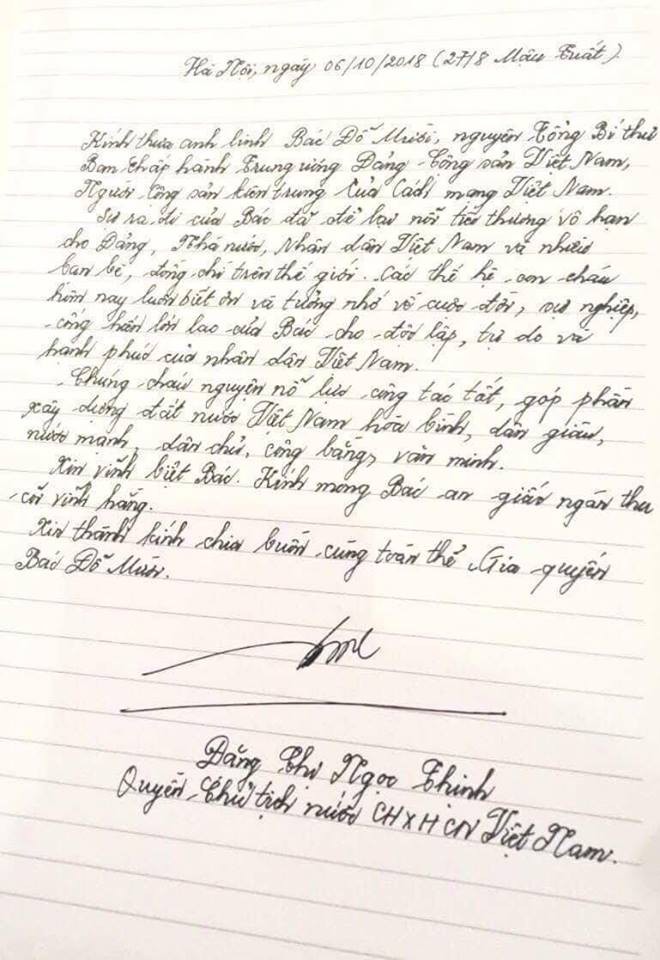 Hà Nội, ngày 06/10/2018 (27/8 Mậu Tuất).
Kính thưa anh linh Bác Đỗ Mười, nguyên Tổng Bí thư
Ban Chấp hành Trung ương Đảng Cộng sản Việt Nam,
Người Cộng sản kiên trung Của Cách mạng Việt Nam.
Sự ra đi của Bác đã để lại nỗi tiếc thương vô hạn
cho Đảng, Nhà nước, Nhân dân Việt Nam và nhiều
bạn bè, đồng chí trên thế giới. Các thế hệ con cháu
hôm nay luôn biết ơn và tưởng nhớ về cuộc đời, sự nghiệp,
công hiến lớn lao của Bác cho độc lập, tự do và
hạnh phúc của nhân dân Việt Nam.
Chúng cháu nguyện nỗ lực công tác tốt, góp phần
xây dựng đất nước Việt Nam hòa bình, dân giàu,
nước mạnh, dân chủ, công bằng, văn minh.
Xin vĩnh biệt Bác. Kính mong Bác an giấc ngàn thu
cõi vĩnh hằng.
Xin thành kính chia buồn cùng toàn thể Gia quyến
Bác Đỗ Mười.
Đặng Thị Ngọc Thịnh
Quyền Chủ tịch nước CHXHCN Việt Nam.